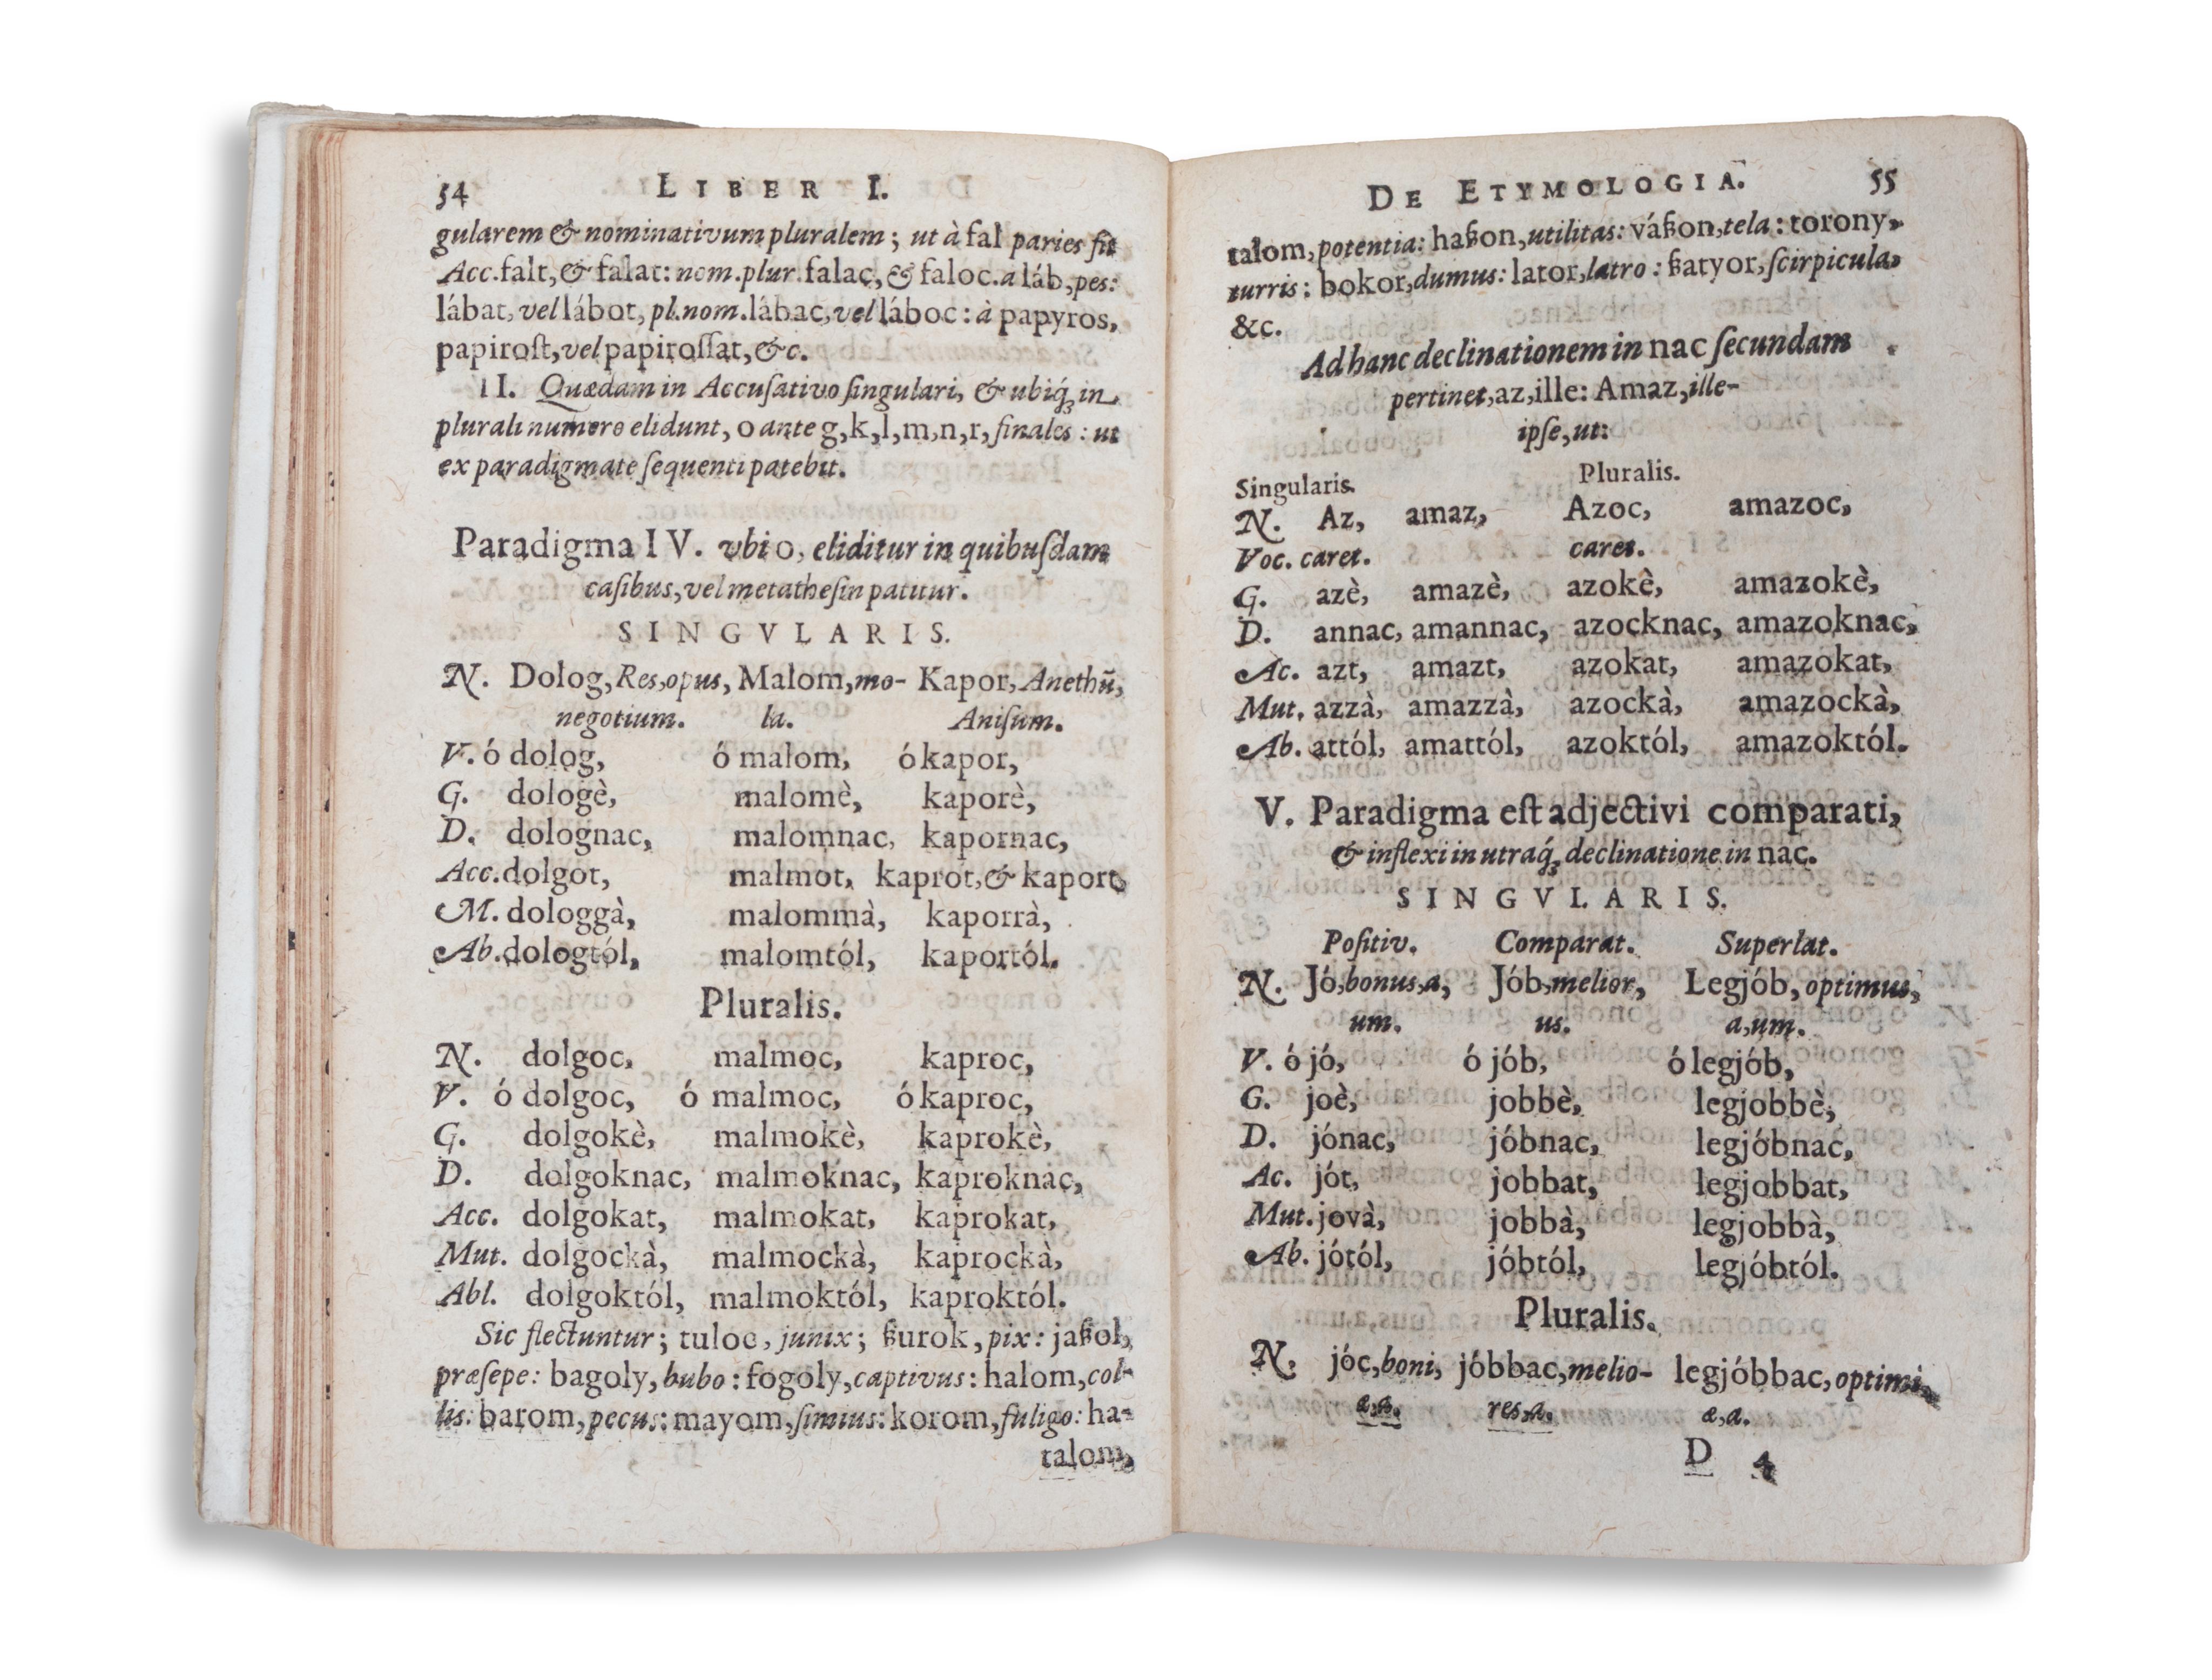 54 LIBER I.
gularem & nominativum pluralem; ut à fal paries fit
Acc. falt, & falat: nom. plur. falac, & faloc. a láb, pes:
lábat, vel lábot, pl. nom. lábac, vel láboc: à papyros,
papiroſt, vel papiroſſat, &c.
II. Quædam in Accuſativo ſingulari, & ubiq́ꝫ in
plurali numero elidunt, o ante g, k, l, m, n, r, finales: ut
ex paradigmate ſequenti patebit.
Paradigma IV. vbi o, eliditur in quibuſdam
caſibus, vel metatheſin patitur.
SINGVLARIS.
N. Dolog, Res, opus, Malom, mo- Kapor, Anethū,
negotium. la. Aniſum.
V. ó dolog, ó malom, ó kapor,
G. dologè, malomè, kaporè,
D. dolognac, malomnac, kapornac,
Acc. dolgot, malmot, kaprot, & kaport,
M. dologgà, malommà, kaporrà,
Ab. dologtól, malomtól, kaportól.
Pluralis.
N. dolgoc, malmoc, kaproc,
V. ó dolgoc, ó malmoc, ó kaproc,
G. dolgokè, malmokè, kaprokè,
D. dolgoknac, malmoknac, kaproknac,
Acc. dolgokat, malmokat, kaprokat,
Mut. dolgockà, malmockà, kaprockà,
Abl. dolgoktól, malmoktól, kaproktól.
Sic flectuntur; tuloc, junix; ßurok, pix: jaßol,
præſepe: bagoly, bubo: fogoly, captivus: halom, col-
lis: barom, pecus: mayom, ſimius: korom, fuligo: ha-
talom,
DE ETYMOLOGIA. 55
talom, potentia: haßon, utilitas: váßon, tela: torony,
turris: bokor, dumus: lator, latro: ßatyor, ſcirpicula,
&c.
Ad hanc declinationem in nac ſecundam
pertinet, az, ille: Amaz, ille-
ipſe, ut:
Singularis. Pluralis.
N. Az, amaz, Azoc, amazoc,
Voc. caret. caret.
G. azè, amazè, azokè, amazokè,
D. annac, amannac, azocknac, amazoknac,
Ac. azt, amazt, azokat, amazokat,
Mut. azzà, amazzà, azockà, amazockà,
Ab. attól, amattól, azoktól, amazoktól.
V. Paradigma eſt adjectivi comparati,
& inflexi in utraq́ꝫ declinatione in nac.
SINGVLARIS.
Poſitiv. Comparat. Superlat.
N. Jó, bonus, a, Jób, melior, Legjób, optimus,
um. us. a, um.
V. ó jó, ó jób, ó legjób,
G. joè, jobbè, legjobbè,
D. jónac, jóbnac, legjóbnac,
Ac. jót, jobbat, legjobbat,
Mut. jovà, jobbà, legjobbà,
Ab. jótól, jóbtól, legjóbtól.
Pluralis.
N. jóc, boni, jóbbac, melio- legjóbbac, optimi,
æ, a. res, a. æ, a.
D 4